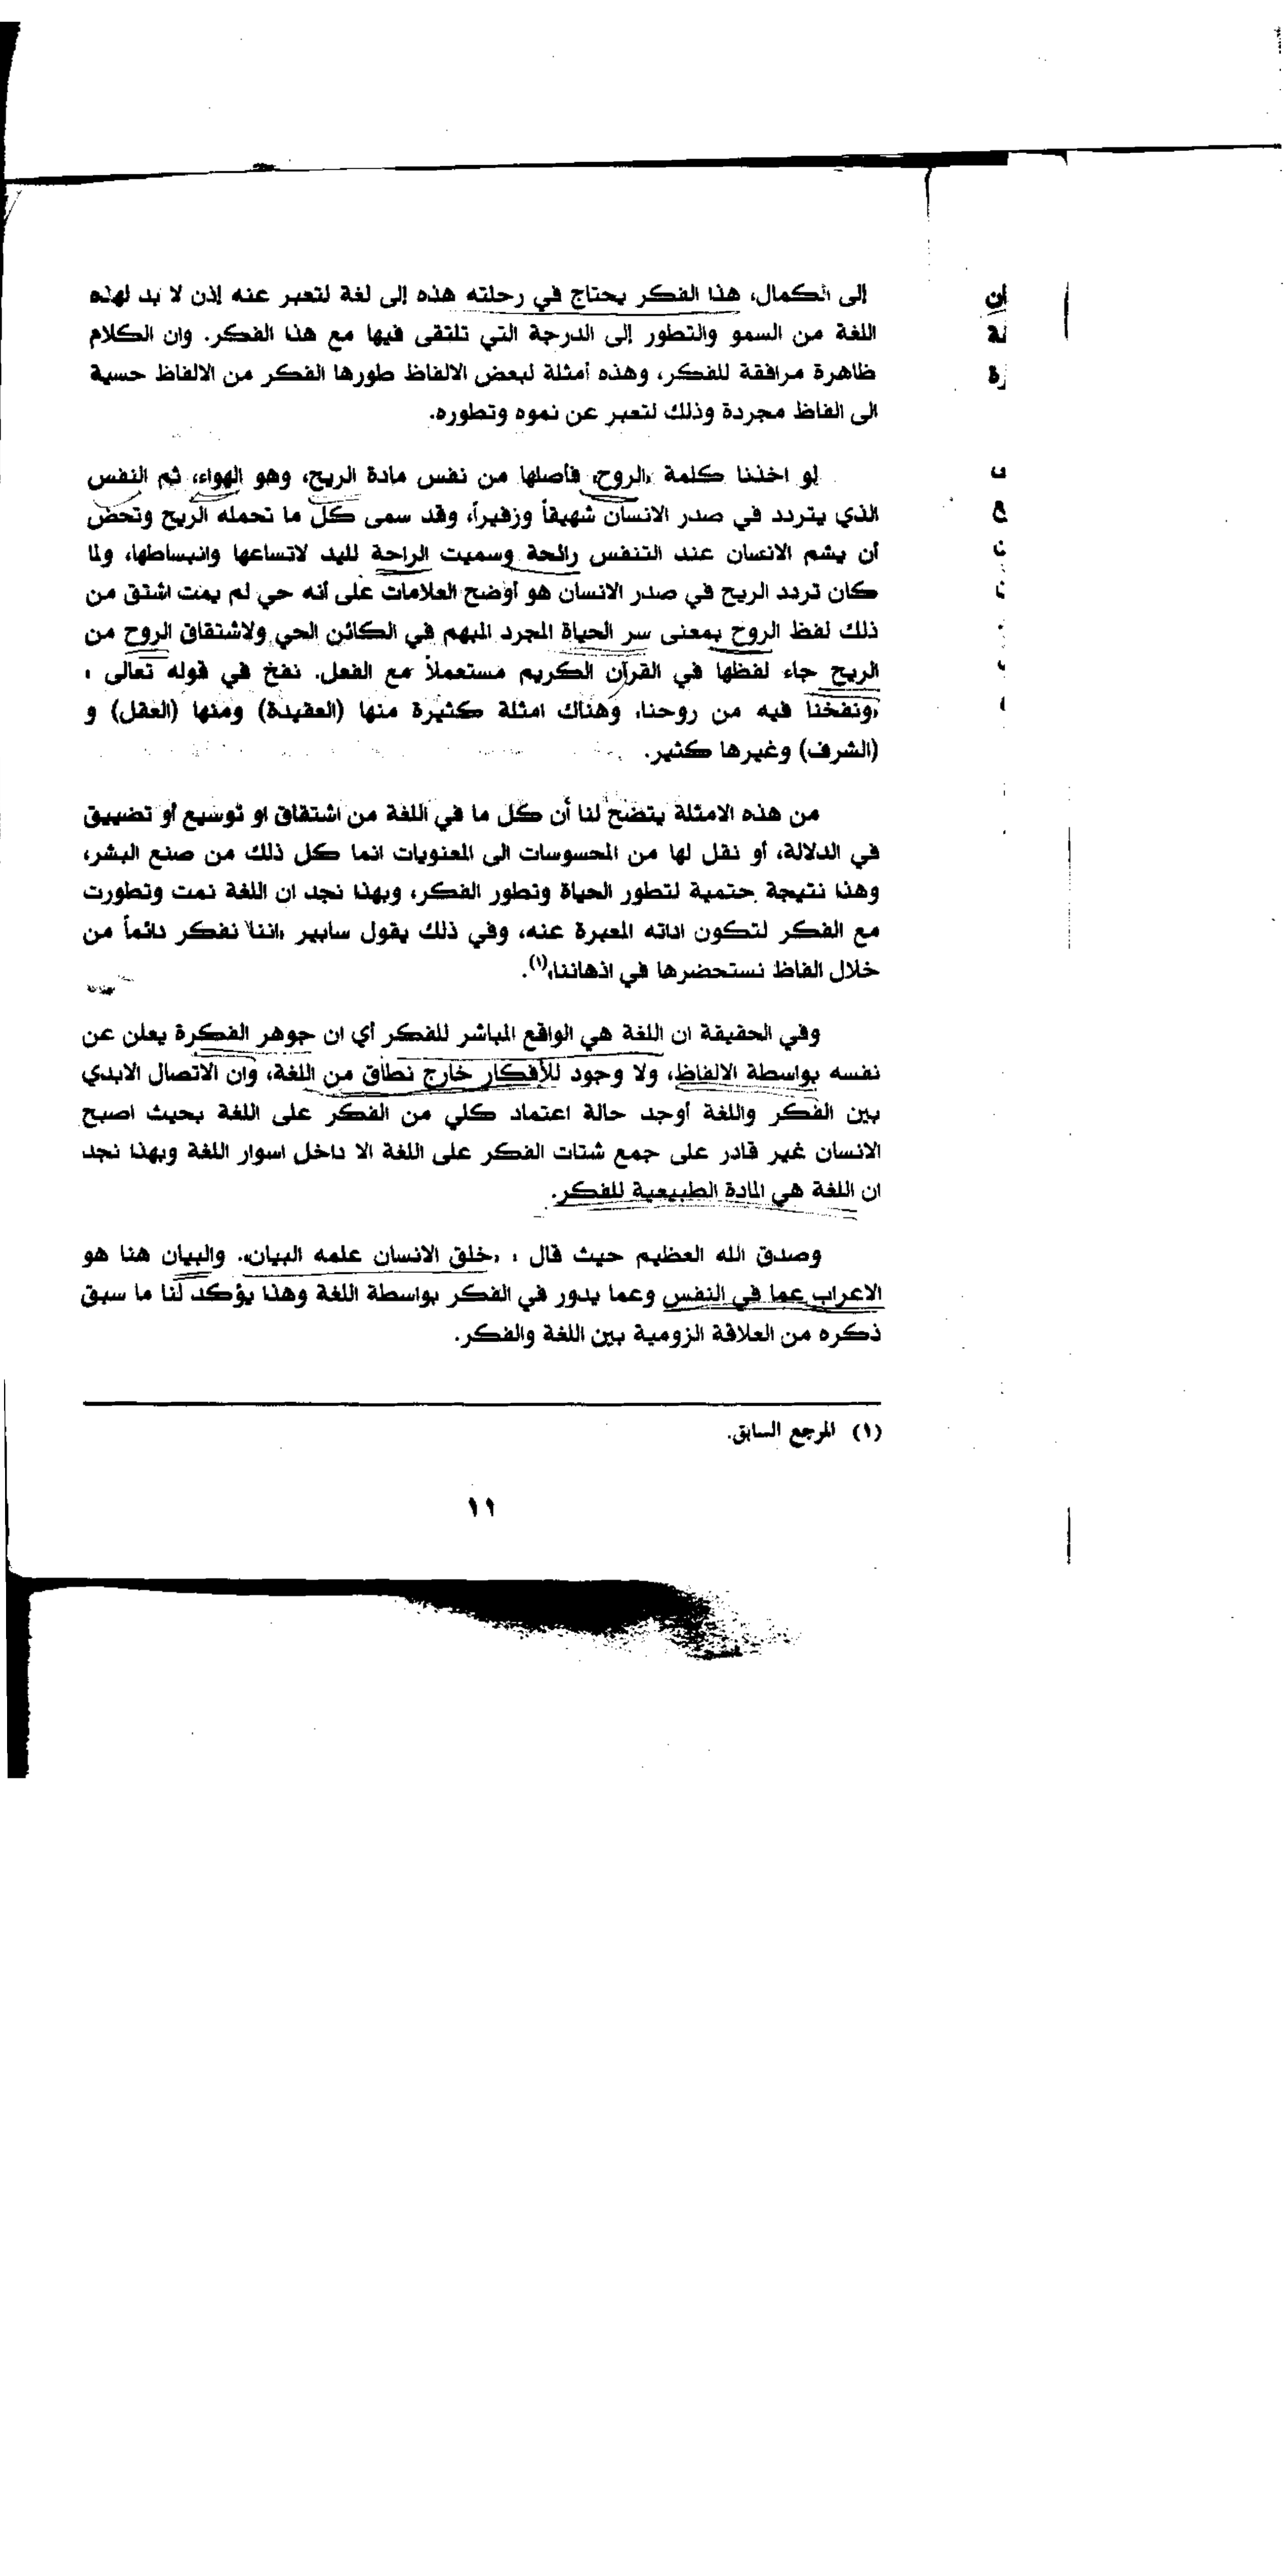 إلى الكمال، هذا الفكر يحتاج في رحلته هذه إلى لغة لتعبر عنه إذن لا بد لهذه
اللغة من السمو والتطور إلى الدرجة التي تلتقى فيها مع هذا الفكر. وان الكلام
ظاهرة مرافقة للفكر، وهذه أمثلة لبعض الالفاظ طورها الفكر من الالفاظ حسية
الى الفاظ مجردة وذلك لتعبر عن نموه وتطوره.
لو اخذنا كلمة «الروح» فأصلها من نفس مادة الريح، وهو الهواء، ثم النفس
الذي يتردد في صدر الانسان شهيقاً وزفيراً، وقد سمى كل ما تحمله الريح وتحض
أن يشم الانسان عند التنفس رائحة وسميت الراحة لليد لاتساعها وانبساطها، ولما
كان تردد الريح في صدر الانسان هو أوضح العلامات على أنه حي لم يمت اشتق من
ذلك لفظ الروح بمعنى سر الحياة المجرد المبهم في الكائن الحي ولاشتقاق الروح من
الريح جاء لفظها في القرآن الكريم مستعملاً مع الفعل. نفخ في قوله تعالى :
«ونفخنا فيه من روحنا» وهناك امثلة كثيرة منها (العقيدة) ومنها (العقل) و
(الشرف) وغيرها كثير.
من هذه الامثلة يتضح لنا أن كل ما في اللغة من اشتقاق او توسيع أو تضييق
في الدلالة، أو نقل لها من المحسوسات الى المعنويات انما كل ذلك من صنع البشر،
وهذا نتيجة حتمية لتطور الحياة وتطور الفكر، وبهذا نجد ان اللغة نمت وتطورت
مع الفكر لتكون اداته المعبرة عنه، وفي ذلك يقول سابير «اننا نفكر دائماً من
خلال الفاظ نستحضرها في اذهاننا»(١).
وفي الحقيقة ان اللغة هي الواقع المباشر للفكر أي ان جوهر الفكرة يعلن عن
نفسه بواسطة الالفاظ، ولا وجود للأفكار خارج نطاق من اللغة، وان الاتصال الابدي
بين الفكر واللغة أوجد حالة اعتماد كلي من الفكر على اللغة بحيث اصبح
الانسان غير قادر على جمع شتات الفكر على اللغة الا داخل اسوار اللغة وبهذا نجد
ان اللغة هي المادة الطبيعية للفكر.
وصدق الله العظيم حيث قال : «خلق الانسان علمه البيان». والبيان هنا هو
الاعراب عما في النفس وعما يدور في الفكر بواسطة اللغة وهذا يؤكد لنا ما سبق
ذكره من العلاقة الزومية بين اللغة والفكر.
(١) المرجع السابق.
١١